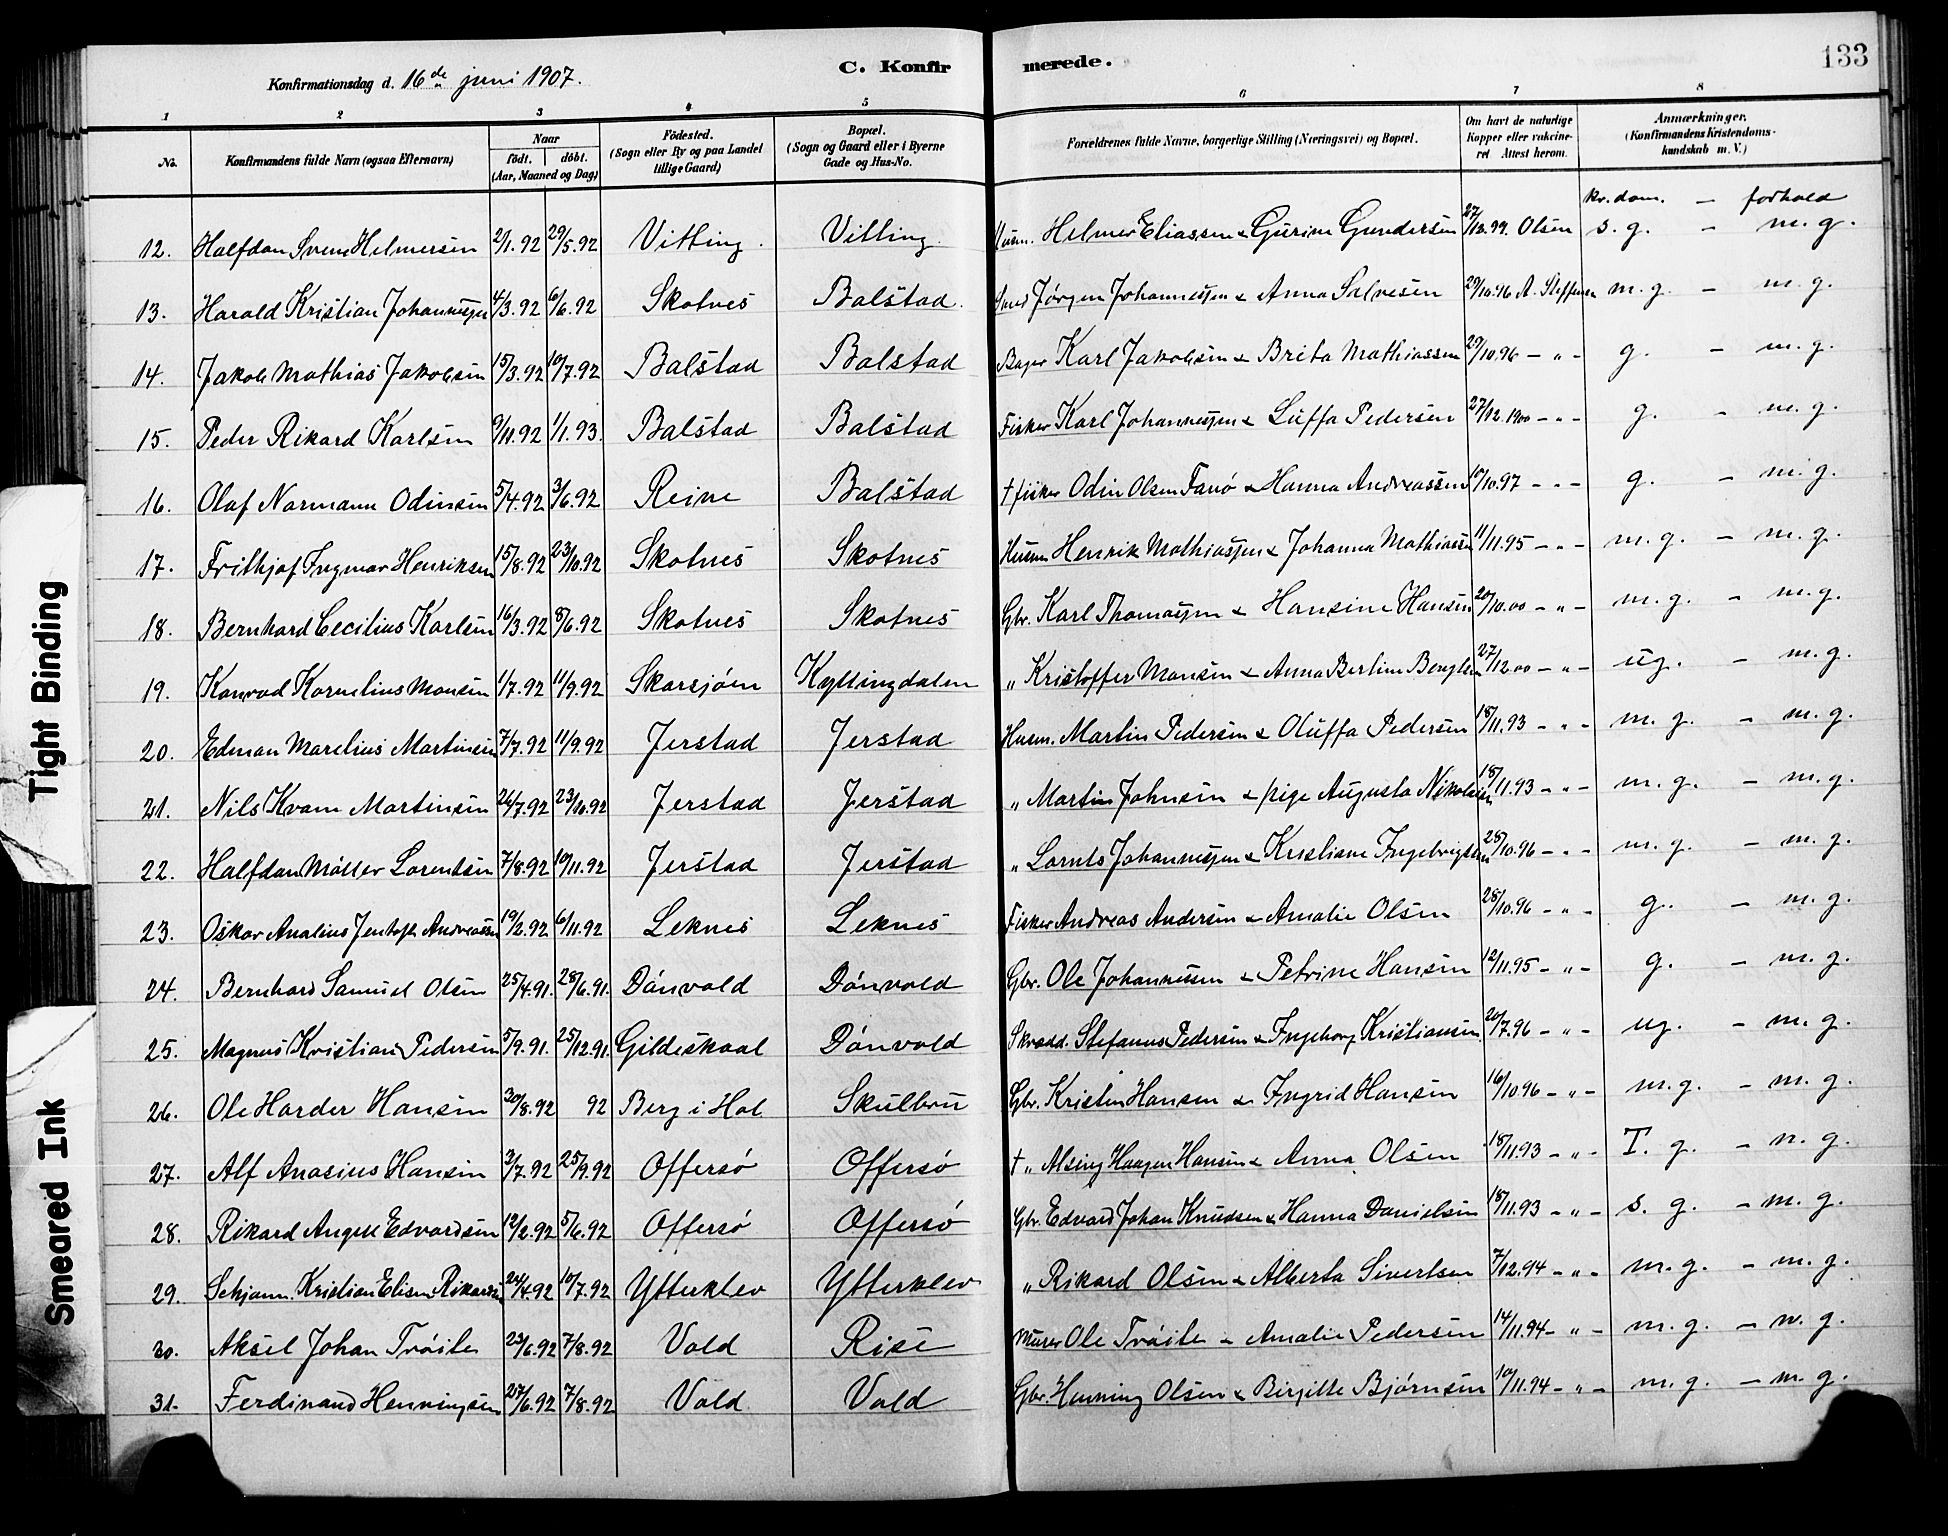 133
C. Konfirmerede.
Konfirmationsdag d. 16de juni 1907.
1 2 3 4 5 6 7 8
No. Konfirmandens fulde Navn (ogsaa Efternavn) Naar født. døbt. (Aar, Maaned og Dag) Fødested. (Sogn eller By og paa Landet tillige Gaard) Bopæl. (Sogn og Gaard eller i Byerne Gade og Hus-No. Forældrenes fulde Navne, borgerlige Stilling (Næringsvei) og Bopæl. Om havt de naturlige Kopper eller vakcineret Attest herom. Anmærkninger. (Konfirmandens Kristendomskundskab m. V.)
kr.dom. - forhold
12. Halfdan Svem Helmersen 2/1.92 29/5.92 Vitting Vitting Husm. Helmer Eliassen & Gurine Gundersen 27/12.99. Olsen s.g. - m.g.
13. Harald Kristian Johannessen 4/3.92 6/6.92 Skotnes Balstad Jørgen Johannessen & Anna Salvesen 29/10.96 A. Steffensen m.g. - m.g.
14. Jakob Mathias Jakobsen 15/3.92 10/7.92 Balstad Balstad Bager Karl Jakobsen & Brita Mathiassen 29/10.96 - " - g. - m.g.
15. Peder Rikard Karlsen 9/11.92 1/1.93. Balstad Balstad Fisker Karl Johannessen & Luffa Pedersen 27/12.1900 - " - g. - m.g.
16. Olaf Normann Odinsen 5/4.92 3/6.92 Reine Balstad † fisker Odin Olsen Fanø & Hanna Andreassen 15/10.97 - " - g. - m.g.
17. Frithjof Ingmar Henriksen 15/8.92 23/10.92 Skotnes Skotnes Husm Henrik Mathiassen & Johanna Mathiassen 11/11.95 - " - m.g. - m.g.
18. Bernhard Cecilius Karlsen 16/3.92 8/6.92 Skotnes Skotnes Gbr. Karl Thomassen & Hansine Hansen 20/10.00 - " - m.g. - m.g.
19. Konrad Kornelius Monsen 1/7.92 11/9.92 Skarsjøen Kyllingdalen " Kristoffer Monsen & Anna Bertine Bengtsen 27/12.00 - " - ug. - m.g.
20. Edman Marelius Martinsen 7/7.92 11/9.92 Jerstad Jerstad Husm. Martin Pedersen & Oluffa Pedersen 18/11.93 - " - m.g. - m.g.
21. Nils Kvam Martinsen 24/7.92 23/10.92 Jerstad Jerstad " Martin Johnsen & pige Augusta Nikolaisen 18/11.93 - " - m.g. - m.g.
22. Halfdan Møller Lorentsen 7/8.92 10/11.92 Jerstad Jerstad " Lornts Johannessen & Kristiane Ingebrigtsen 28/10.96 - " - m.g. - m.g.
23. Oskar Analius Jentoft Andreassen 19/2.92 6/11.92 Leknes Leknes Fisker Andreas Andersen & Amalie Olsen 28/10.96 - " - g. - m.g.
24. Bernhard Samuel Olsen 25/4.91. 28/6.91. Dønvold Dønvold Gbr. Ole Johannessen & Petrine Hansen 12/11.95 - " - g. - m.g.
25. Magnus Kristian Pedersen 5/9.91. 25/12.91. Gildeskaal Dønvold Skrædd. Stefanus Pedersen & Ingeborg Kristiansen 20/7.96 - " - ug. - m.g.
26. Ole Harder Hansen 30/8.92 92 Berg i Hol Skulbru Gbr. Kristen Hansen & Ingrid Hansen 16/10.96 - " - m.g. - m.g.
27. Alf Anasius Hansen 3/7.92 25/9.92 Offersø Offersø † " Alsing Haagen Hansen & Anna Olsen 18/11.93 - " - T.g. - n.g.
28. Rikard Angell Edvardsen 12/2.92 5/6.92 Offersø Offersø Gbr. Edvard Johan Knudsen & Hanna Danielsen 18/11.93 - " - s.g. - m.g.
29. Schjann. Kristian Elisæus Rikardsen 24/4.92 10/7.92 Ytterklev Ytterklev " Rikard Olsen & Alberta Sivertsen 7/12.94 - " - m.g. - m.g.
30. Aksel Johan Trøite 23/6.92 7/8.92 Vold Rise Murer Ole Trøite & Amalie Pedersen 14/11.94 - " - m.g. - n.g.
31. Ferdinand Henningsen 27/6.92 7/8.92 Vold Vold Gbr. Henning Olsen & Birgitte Bjørnsen 10/11.94 - " - m.g. - m.g.
Tight Binding
Smeared Ink